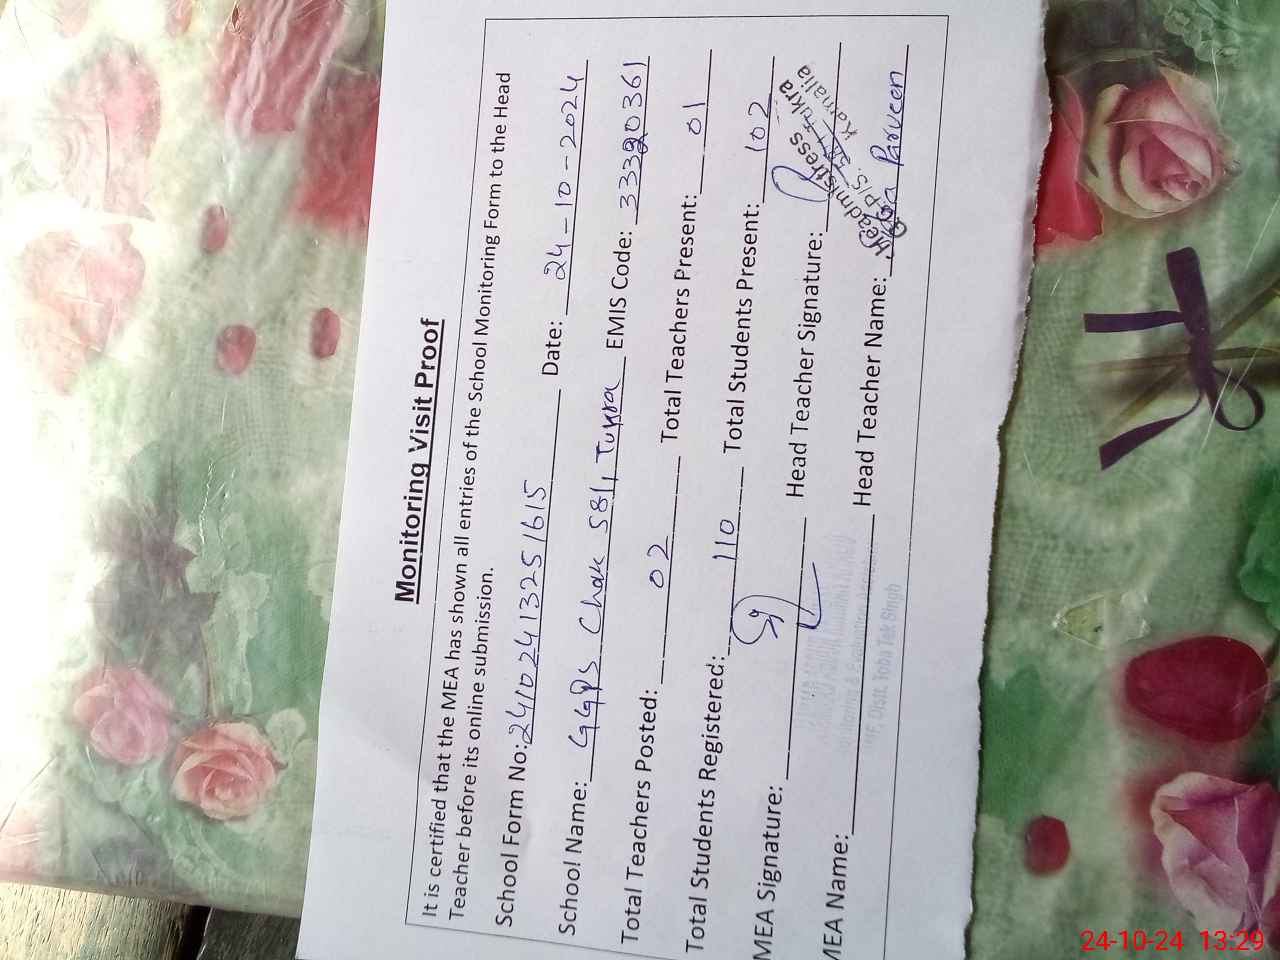 Monitoring Visit Proof
It is certified that the MEA has shown all entries of the School Monitoring Form to the Head
Teacher before its online submission.
School Form No: 24102413251615 Date: 24-10-2024
School Name: GGPS Chak 581, Tukra EMIS Code: 33390361
Total Teachers Posted: 02 Total Teachers Present: 01
Total Students Registered: 110 Total Students Present: 102
MEA Signature: Head Teacher Signature:
Headmistress
Kamalia
MEA Name: Head Teacher Name: Parveen
Distt. Toba Tek Singh
24-10-24 13:29